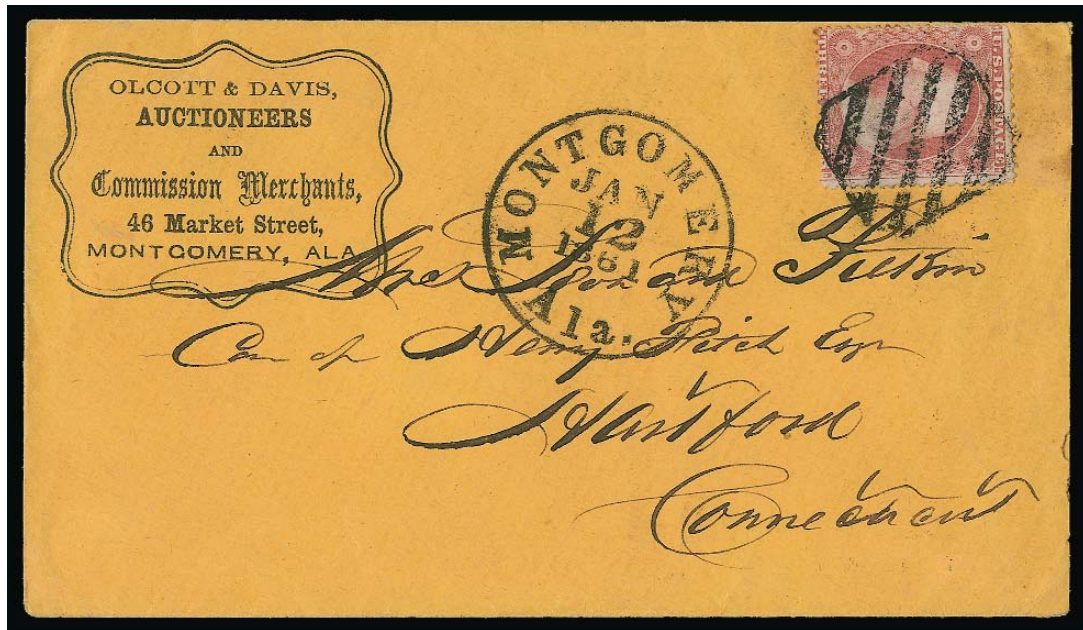 OLCOTT & DAVIS,
AUCTIONEERS
AND
Commission Merchants,
46 Market Street,
MONTGOMERY, ALA
MONTGOMERY
JAN
12
1861
Ala.
THREE
U.S. POSTAGE
and
Care of Henry Fitch Esqr
Hartford
Connecticut